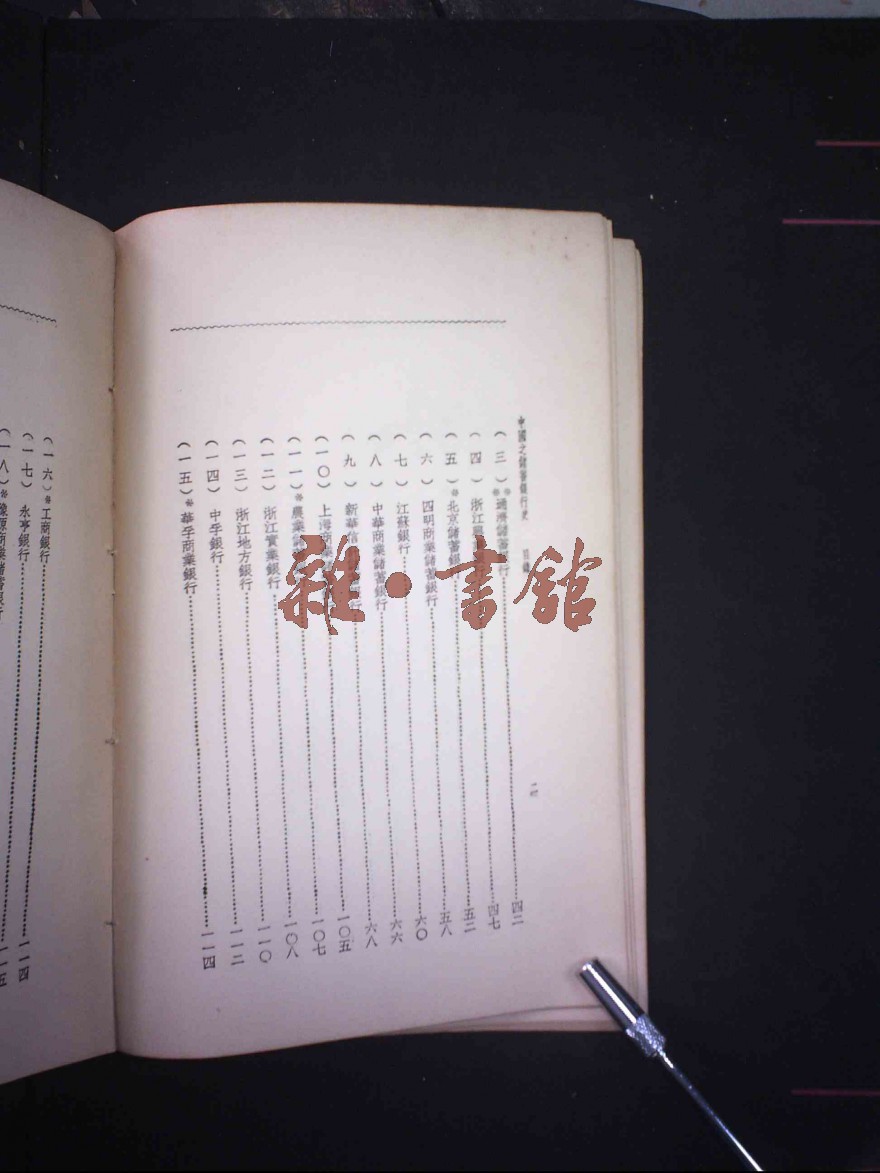 中國之儲蓄銀行史 目錄
(三)*通濟儲蓄銀行 四二
(四)*浙江 四七
(五)*北京儲蓄銀行 五二
(六) 四明商業儲蓄銀行 五八
(七) 江蘇銀行 六〇
(八) 中華商業儲蓄銀行 六六
(九) 新華信 銀行 六八
(一〇) 上海商業 一〇五
(一一)*農業儲 一〇七
(一二) 浙江實業銀行 一〇八
(一三) 浙江地方銀行 一一〇
(一四) 中孚銀行 一一二
(一五)*華孚商業銀行 一一四
(一六)*工商銀行
(一七) 永亨銀行 一一四
(一八)* 商業儲蓄銀行 一一五
雜·書館